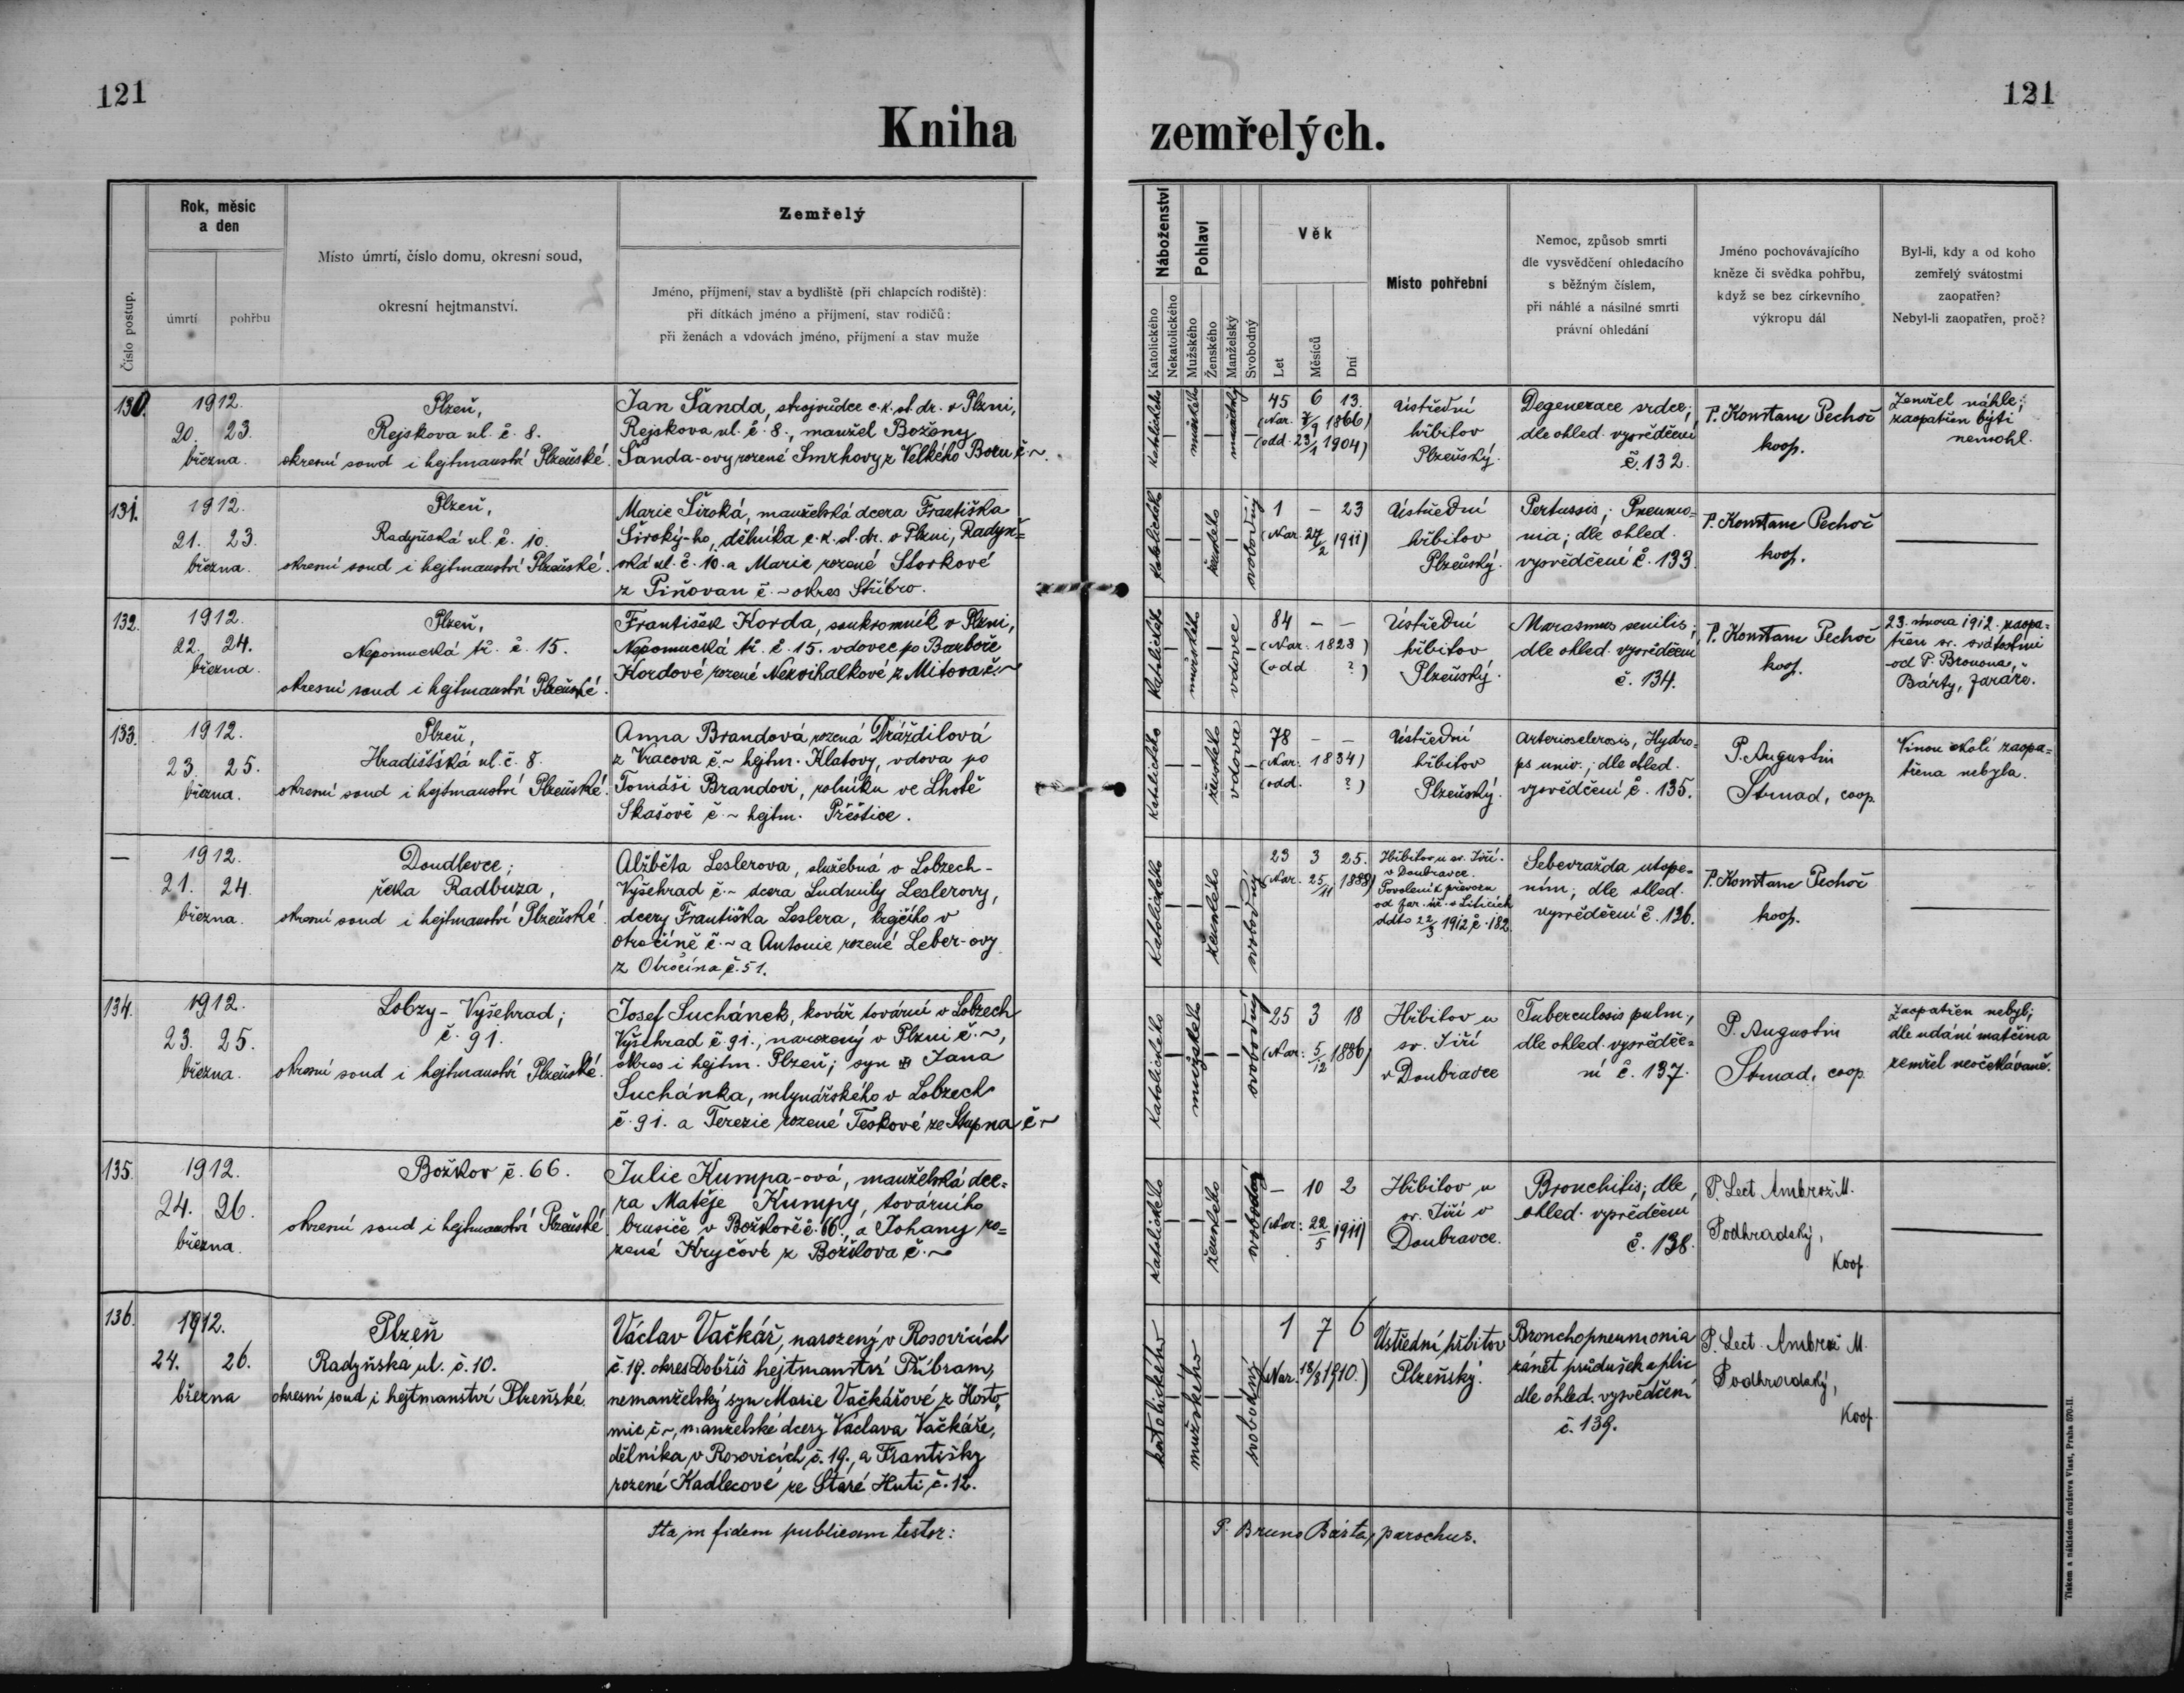 121
121
Kniha zemřelých.
Číslo postup.
Rok, měsíc
a den
úmrtí
pohřbu
Místo úmrtí, číslo domu, okresní soud,
okresní hejtmanství.
Zemřelý
Jméno, příjmení, stav a bydliště (při chlapcích rodiště):
při dítkách jméno a příjmení, stav rodičů:
při ženách a vdovách jméno, příjmení a stav muže
Náboženství
Katolického
Nekatolického
Pohlaví
Mužského
Ženského
Manželský
Svobodný
Věk
Let
Měsíců
Dní
Místo pohřební
Nemoc, způsob smrti
dle vysvědčení ohledacího
s běžným číslem,
při náhlé a násilné smrti
právní ohledání
Jméno pochovávajícího
kněze či svědka pohřbu,
když se bez církevního
výkropu dál
Byl-li, kdy a od koho
zemřelý svátostmi
zaopatřen?
Nebyl-li zaopatřen, proč?
130.
1912.
20. 23.
března.
Plzeň,
Rejskova ul. č. 8.
okresní soud i hejtmanství Plzeňské.
Jan Šanda, strojvůdce c.k. st. dr. v Plzni,
Rejskova ul. č. 8., manžel Boženy
Šanda-ovy rozené Smrhovy z Velkého Boru č. ~.
katolického
mužského
manželský
45 6 13.
(Nar. 7/9 1866)
(odd. 23/1 1904)
Ústřední
hřbitov
Plzeňský.
Degenerace srdce;
dle ohled. vysvědčení
č. 132.
P. Konstanc Pechoč
koop.
Zemřel náhle;
zaopatřen býti
nemohl.
131.
1912.
21. 23.
března.
Plzeň,
Radyňská ul. č. 10.
okresní soud i hejtmanství Plzeňské.
Marie Široká, manželská dcera Františka
Široký-ho, dělníka c.k. st. dr. v Plzni, Radyň=
ská ul. č. 10. a Marie rozené Storkové
z Piňovan č. ~ okres Stříbro.
katolického
ženského
svobodný
1 – 23
(Nar. 27/2 1911)
Ústřední
hřbitov
Plzeňský.
Pertussis; Pneumo=
nia; dle ohled.
vysvědčení č. 133.
P. Konstanc Pechoč
koop.
132.
1912.
22. 24.
března.
Plzeň,
Nepomucká tř. č. 15.
okresní soud i hejtmanství Plzeňské.
František Korda, soukromník v Plzni,
Nepomucká tř. č. 15. vdovec po Barboře
Kordové rozené Nezvihalkové z Mitova č. ~
katolického
mužského
vdovec
84 – –
(Nar. 1828)
(odd ?)
Ústřední
hřbitov
Plzeňský.
Marasmus senilis;
dle ohled. vysvědčení
č. 134.
P. Konstanc Pechoč
koop.
23. února 1912. zaopa=
třen sv. svátostmi
od P. Brunona
Bárty, faráře.
133.
1912.
23. 25.
března.
Plzeň,
Hradišťská ul. č. 8.
okresní soud i hejtmanství Plzeňské.
Anna Brandová rozená Dráždilová
z Vracova č. ~ hejtm. Klatovy, vdova po
Tomáši Brandovi, rolníku ve Lhotě
Skašově č. ~ hejtm. Přeštice.
katolického
ženského
vdova
78 – –
(Nar. 1834)
(odd. ?)
Ústřední
hřbitov
Plzeňský.
Arteriosclerosis, Hydro=
ps univ.; dle ohled.
vysvědčení č. 135.
P. Augustin
Strnad, coop.
Vinou okolí zaopa=
třena nebyla.
–
1912.
21. 24.
března.
Doudlevce;
řeka Radbuza,
okresní soud i hejtmanství Plzeňské
Alžběta Leslerova, služebná v Lobzech-
Vyšehrad č. ~ dcera Ludmily Leslerovy,
dcery Františka Leslera, krejčího v
Otročíně č. ~ a Antonie rozené Leber-ovy
z Otročína č. 51.
katolického
ženského
svobodný
23 3 25.
(Nar. 25/11 1888)
Hřbitov u sv. Jiří
v Doubravce.
Povolení k převozu
od far. úř. v Liticích
ddto 22/3 1912 č. 182
Sebevražda utope=
ním, dle ohled.
vysvědčení č. 136.
P. Konstanc Pechoč
koop.
134.
1912.
23. 25.
března.
Lobzy-Vyšehrad;
č. 91.
okresní soud i hejtmanství Plzeňské.
Josef Suchánek, kovář tovární v Lobzech
Vyšehrad č. 91., narozený v Plzni č. ~,
okres i hejtm. Plzeň; syn Jana
Suchánka, mlynářského v Lobzech
č. 91. a Terezie rozené Teskové ze Stupna č. ~
katolického
mužského
svobodný
25 3 18
(Nar. 5/12 1886)
Hřbitov u
sv. Jiří
v Doubravce
Tuberculosis pulm.,
dle ohled. vysvědče=
ní č. 137.
P. Augustin
Strnad, coop.
Zaopatřen nebyl;
dle udání matčina
zemřel neočekávaně.
135.
1912.
24. 26.
března.
Božkov č. 66.
okresní soud i hejtmanství Plzeňské
Julie Kumpa-ová, manželská dce=
ra Matěje Kumpy, továrního
brusiče v Božkově č. 66., a Johany ro=
zené Kryčové z Božkova č. ~
katolického
ženského
svobodný
– 10 2
(Nar. 22/5 1911)
Hřbitov u
sv. Jiří v
Doubravce.
Bronchitis; dle
ohled. vysvědčení
č. 138.
P. Lect. Ambrož M.
Podhradský,
Koop.
136.
1912.
24. 26.
března
Plzeň
Radyňská ul. č. 10.
okresní soud i hejtmanství Plzeňské.
Václav Vačkář, narozený v Rosovicích
č. 19. okres Dobříš hejtmanství Příbram,
nemanželský syn Marie Vačkářové z Hosto=
mic č. ~, manželské dcery Václava Vačkáře,
dělníka v Rosovicích č. 19., a Františky
rozené Kadlecové ze Staré Huti č. 12.
katolického
mužského
svobodný
1 7 6
(Nar. 18/8 1910.)
Ústřední hřbitov
Plzeňský.
Bronchopneumonia
zánět průdušek a plic
dle ohled. vysvědčení
č. 139.
P. Lect. Ambrož M.
Podhradský,
Koop.
Ita in fidem publicam testor:
P. Bruno Bárta, parochus.
Tiskem a nákladem družstva Vlast, Praha 570-II.